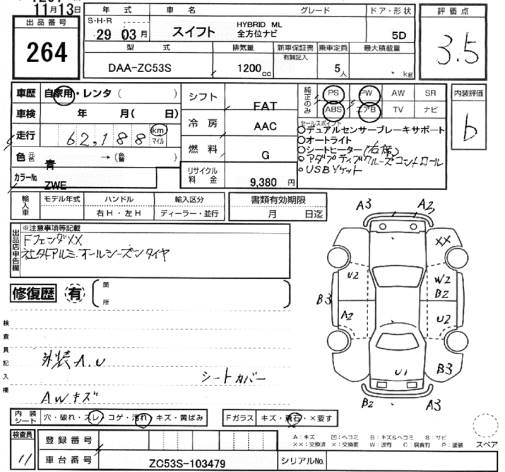 11月13日
出品番号
264
S・H・R 年式 車名 グレード ドア・形状
29年 03月 スイフト HYBRID ML 全方位ナビ 5D
型式 排気量 新車保証書 有類記入 乗車定員 最大積載量
DAA-ZC53S 1200cc 5人 kg
評価点
3.5
車歴 自家用・レンタ( )
車検 年 月( 日)
走行 62,188 km マイル
色 元色 青 →(色替)
カラーNo. ZWE
シフト FAT
冷房 AAC
燃料 G
リサイクル料金 9,380 円
純正のみ PS PW AW SR
ABS エアB TV ナビ
セールスポイント
○デュアルセンサーブレーキサポート
○オートライト
○シートヒーター(右席)
○アダプティブクルーズコントロール
○USBソケット
内装評価
b
輸入車 モデル年式 ハンドル 輸入区分
右H・左H ディーラー・並行
書類有効期限
月 日迄
出品店申告欄
※注意事項等記載
FフェンダXX
社外アルミ、オールシーズンタイヤ
修復歴 有 箇所
検査員記入欄
外装A.U
シートカバー
AWキズ
A3 A2
XX
U2 W2
B3 B2 B3
A2 U2
U1
B2 A3
内装シート 穴・破れ・スレ コゲ・汚れ キズ・黄ばみ
Fガラス キズ・飛石・X要す
検査員 11
登録番号
車台番号 ZC53S-103479
シリアルNo.
スペア